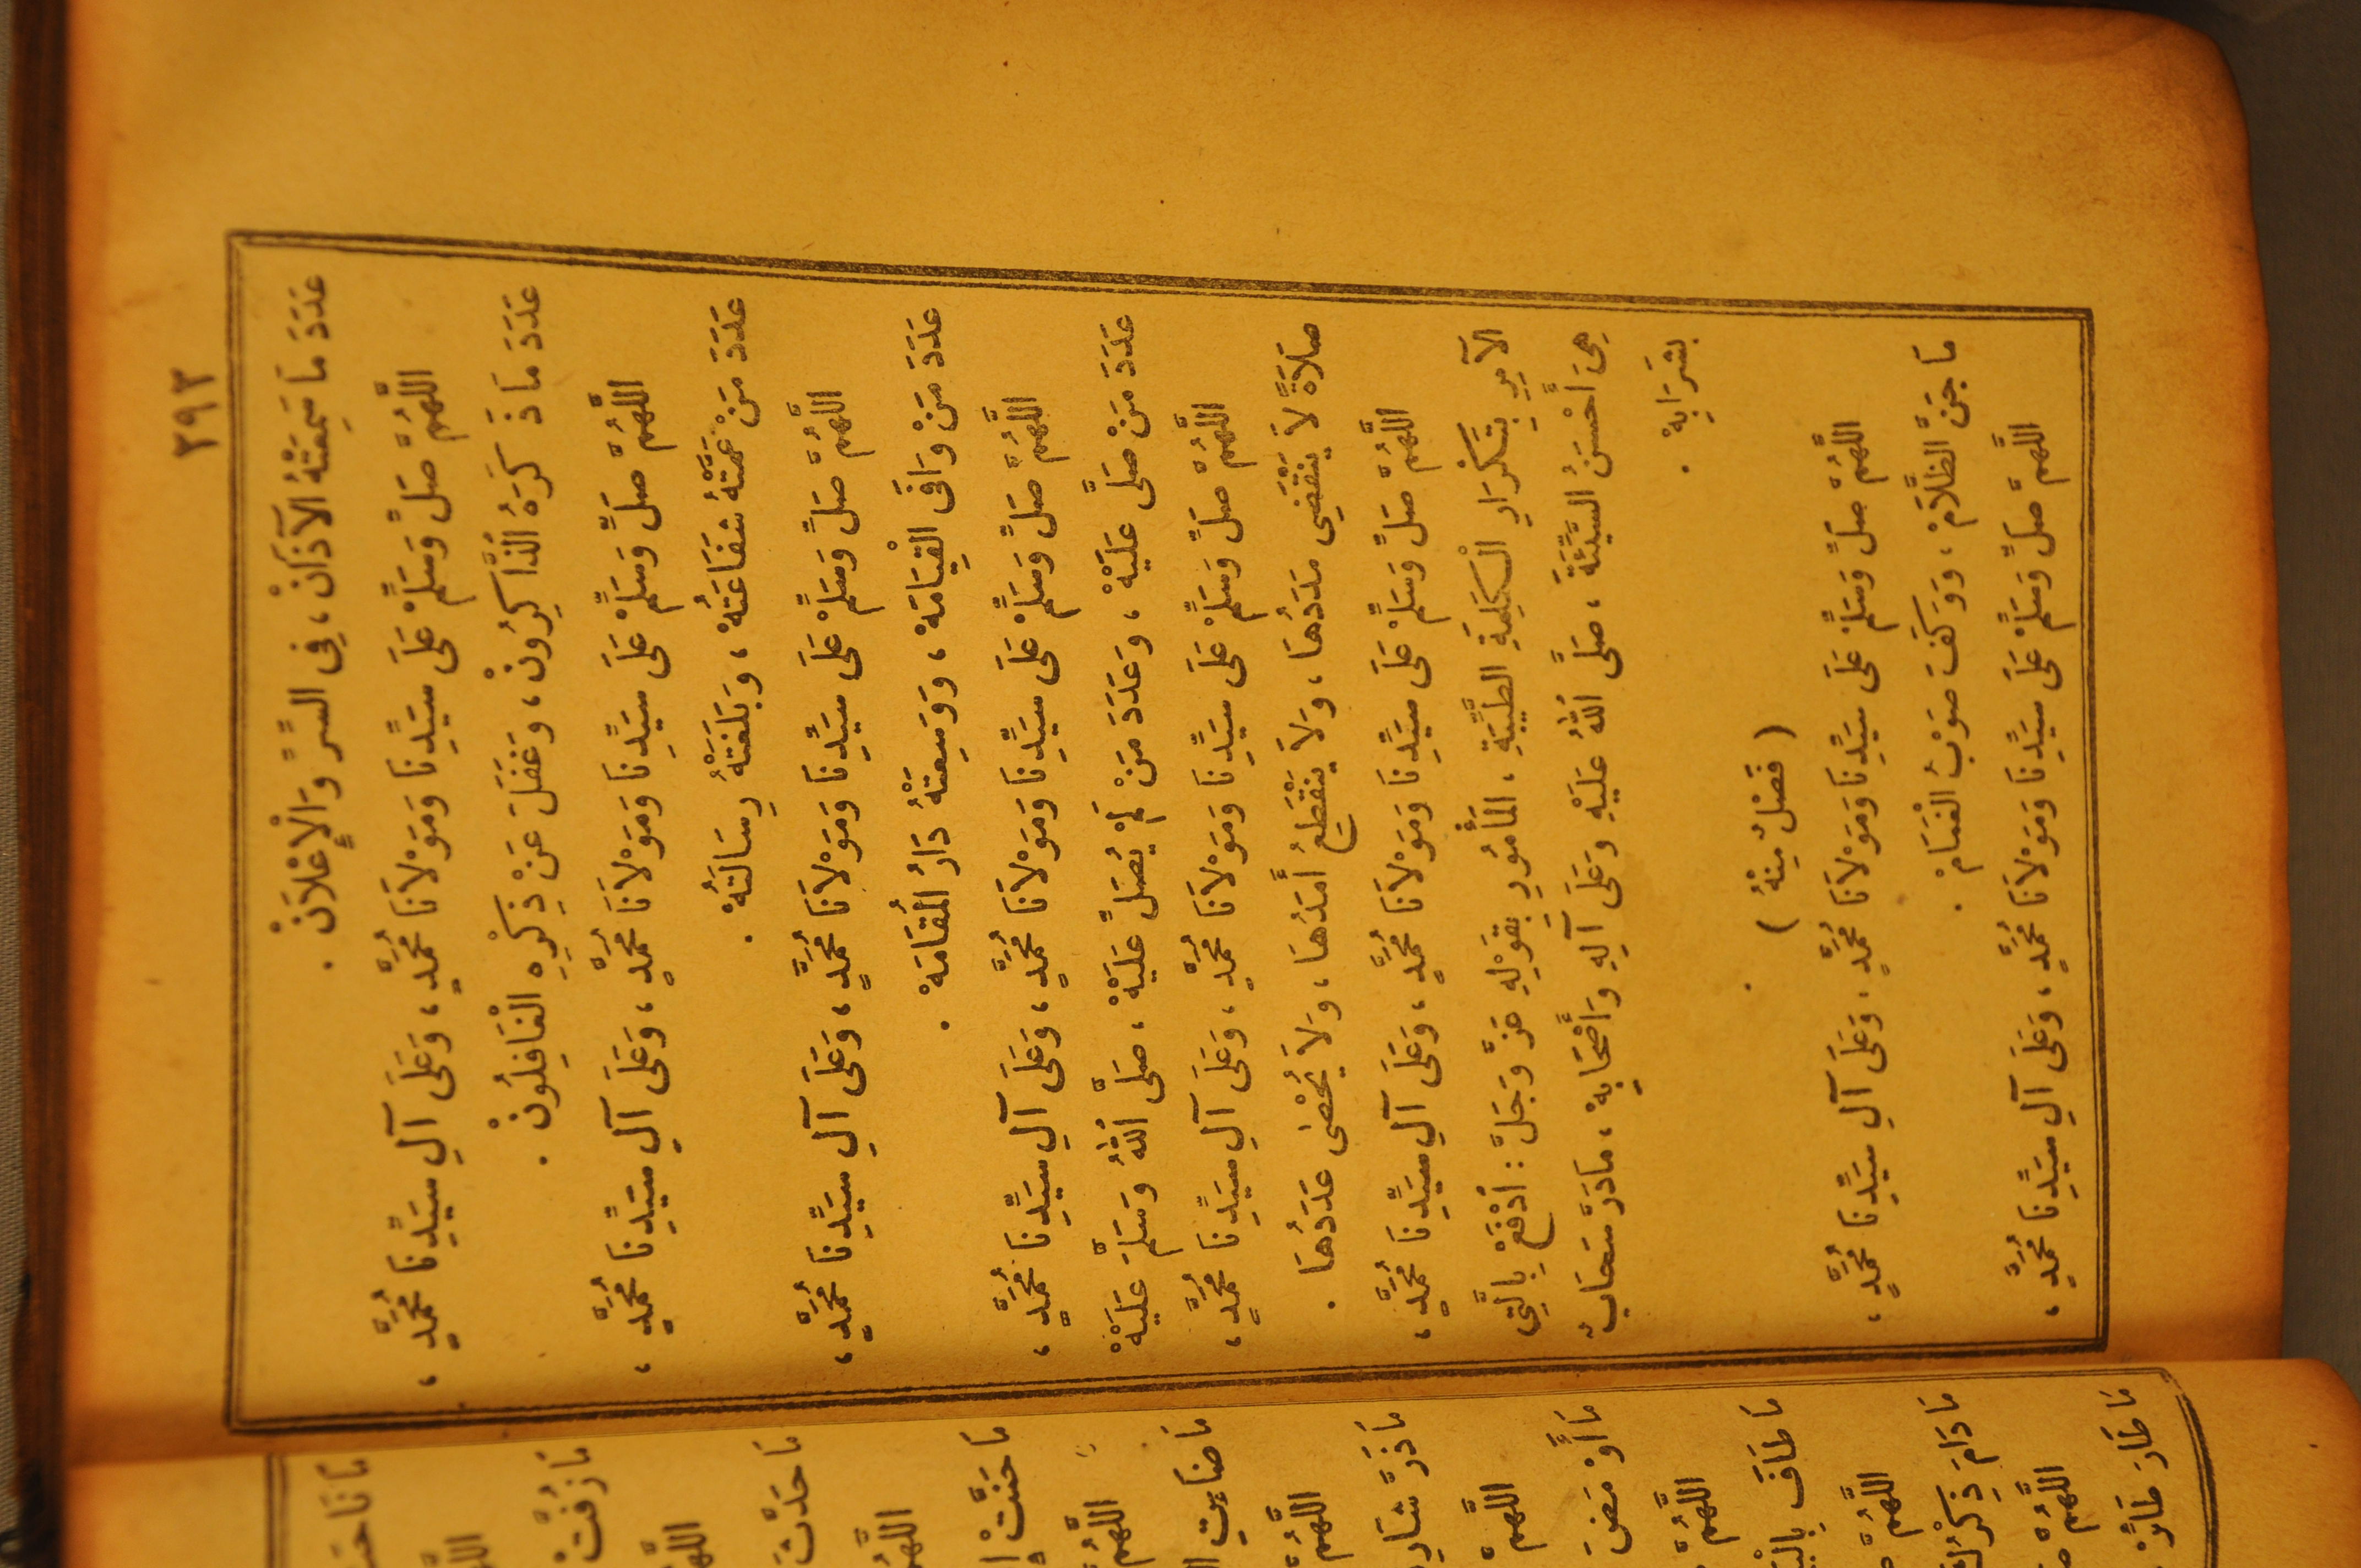 عَدَدَ مَا سَمِعَتْهُ الْآذَانْ، فِى السِّرِّ وَالْإِعْلَانْ.
اللَّهُمَّ صَلِّ وَسَلِّمْ عَلَى سَيِّدِنَا وَمَوْلَانَا مُحَمَّدٍ، وَعَلَى آلِ سَيِّدِنَا مُحَمَّدٍ،
عَدَدَ مَا ذَكَرَهُ الذَّاكِرُونْ، وَغَفَلَ عَنْ ذِكْرِهِ الْغَافِلُونْ.
اللَّهُمَّ صَلِّ وَسَلِّمْ عَلَى سَيِّدِنَا وَمَوْلَانَا مُحَمَّدٍ، وَعَلَى آلِ سَيِّدِنَا مُحَمَّدٍ،
عَدَدَ مَنْ عَمَّتْهُ شَفَاعَتُهْ، وَبَلَغَتْهُ رِسَالَتُهْ.
اللَّهُمَّ صَلِّ وَسَلِّمْ عَلَى سَيِّدِنَا وَمَوْلَانَا مُحَمَّدٍ، وَعَلَى آلِ سَيِّدِنَا مُحَمَّدٍ،
عَدَدَ مَنْ وَافَى الْقِيَامَهْ، وَوَسِعَتْهُ دَارُ الْمُقَامَهْ.
اللَّهُمَّ صَلِّ وَسَلِّمْ عَلَى سَيِّدِنَا وَمَوْلَانَا مُحَمَّدٍ، وَعَلَى آلِ سَيِّدِنَا مُحَمَّدٍ،
عَدَدَ مَنْ صَلَّى عَلَيْهْ، وَعَدَدَ مَنْ لَمْ يُصَلِّ عَلَيْهْ، صَلَّى اللهُ وَسَلَّمَ عَلَيْهْ
اللَّهُمَّ صَلِّ وَسَلِّمْ عَلَى سَيِّدِنَا وَمَوْلَانَا مُحَمَّدٍ، وَعَلَى آلِ سَيِّدِنَا مُحَمَّدٍ،
صَلَاةً لَا يَنْقَضِى مَدَدُهَا، وَلَا يَنْقَطِعُ أَمَدُهَا، وَلَا يُحْصَى عَدَدُهَا.
اللَّهُمَّ صَلِّ وَسَلِّمْ عَلَى سَيِّدِنَا وَمَوْلَانَا مُحَمَّدٍ، وَعَلَى آلِ سَيِّدِنَا مُحَمَّدٍ،
الْآمِرِ بِتَكْرَارِ الْكَلِمَةِ الطَّيِّبَةِ، الْمَأْمُورِ بِقَوْلِهِ عَزَّ وَجَلَّ: اُدْفَعْ بِالَّتِى
هِىَ أَحْسَنُ السَّيِّئَةَ، صَلَّى اللهُ عَلَيْهِ وَعَلَى آلِهِ وَأَصْحَابِهْ، مَا دَرَّ سَحَابٌ
بِشَرَابِهْ.
(فَصْلٌ مِنْهُ).
اللَّهُمَّ صَلِّ وَسَلِّمْ عَلَى سَيِّدِنَا وَمَوْلَانَا مُحَمَّدٍ، وَعَلَى آلِ سَيِّدِنَا مُحَمَّدٍ،
مَا جَنَّ الظَّلَامْ، وَوَكَفَ صَوْبُ الْغَمَامْ.
اللَّهُمَّ صَلِّ وَسَلِّمْ عَلَى سَيِّدِنَا وَمَوْلَانَا مُحَمَّدٍ، وَعَلَى آلِ سَيِّدِنَا مُحَمَّدٍ،
مَا
مَا زُفَّتْ
مَا
اللَّهُمَّ
مَا حَنَّتْ
اللَّهُمَّ
مَا
اللَّهُمَّ
مَا ذَرَّ
اللَّهُمَّ
مَا
اللَّهُمَّ
مَا طَافَ
اللَّهُمَّ
مَا دَامَ
اللَّهُمَّ
مَا طَارَ